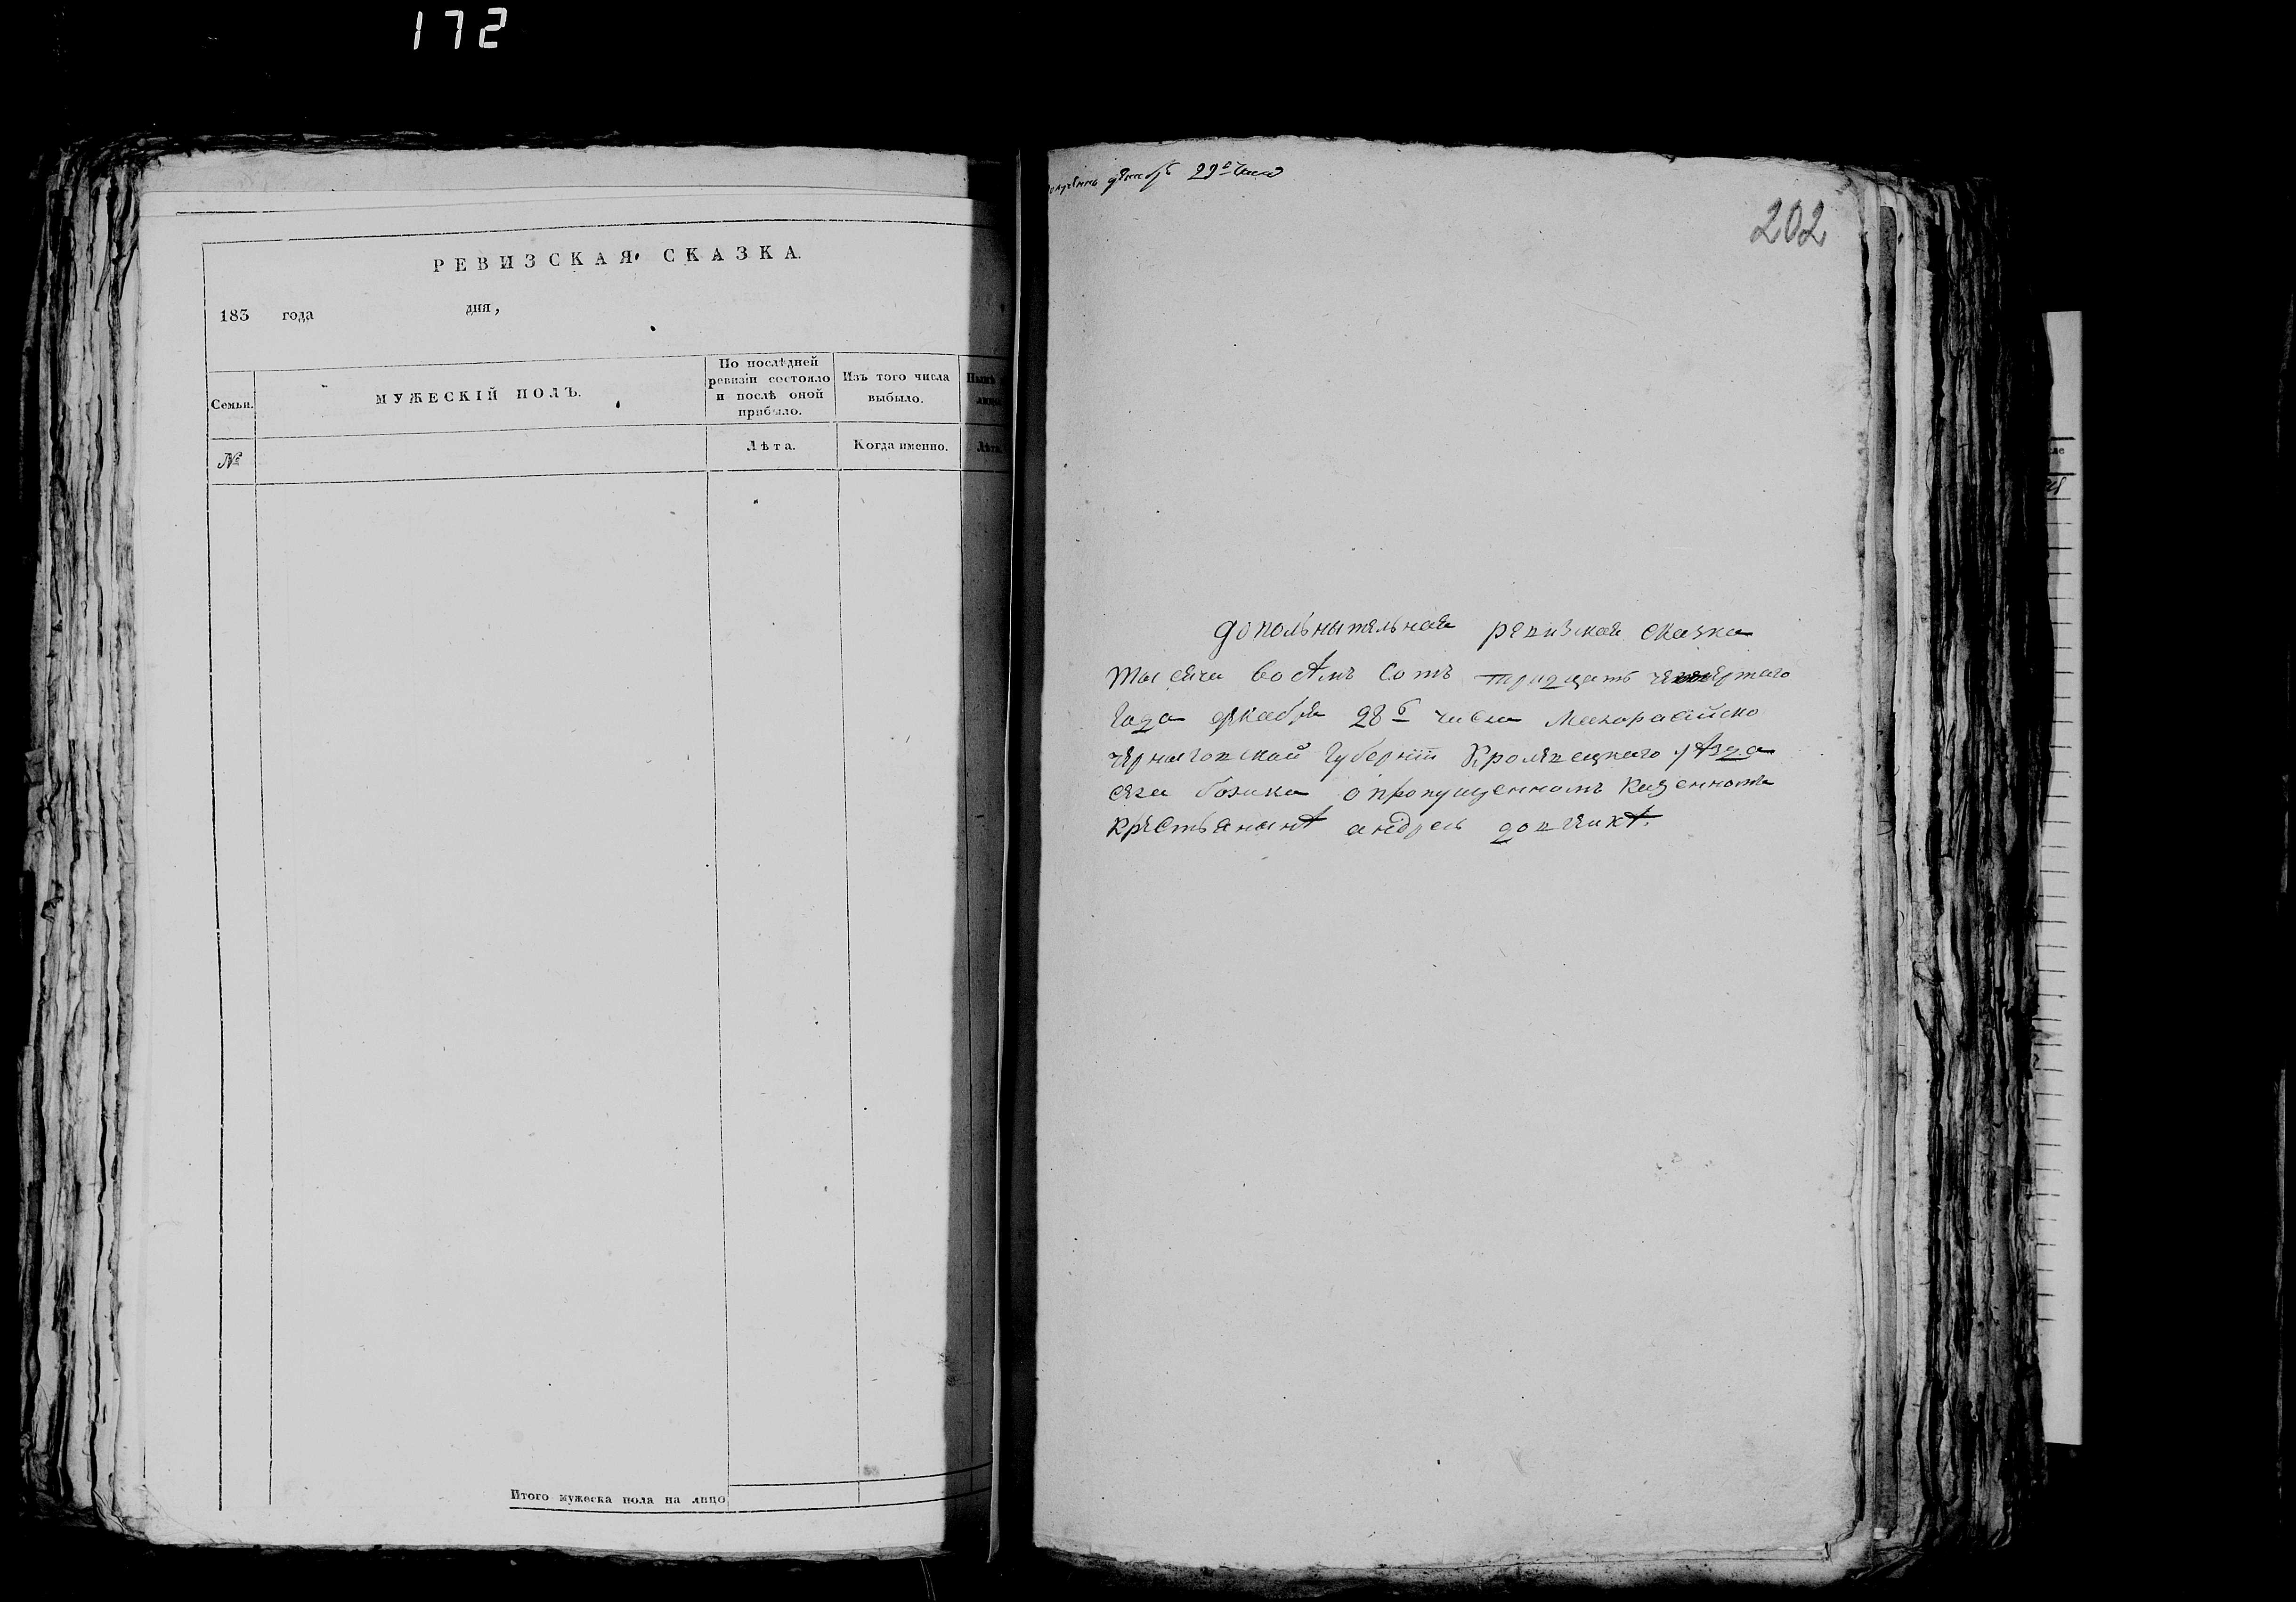 172
РЕВИЗСКАЯ СКАЗКА.
183 года дня,
Семьи.
МУЖЕСКІЙ ПОЛЪ.
По послѣдней
ревизіи состояло
и послѣ оной
прибыло.
Изъ того числа
выбыло.
№
Лѣта.
Когда именно.
Лѣта.
Итого мужеска пола на лицо
29го
202
дополънытельная ревизкая сказка
тысяча восѣмъ сотъ тридцать четвертаго
года декабря 28го числа Малоросійско
черныговской губерніи Кролевецкаго уѣзда
села о пропущенномъ казенномъ
крестьянинѣ андрею